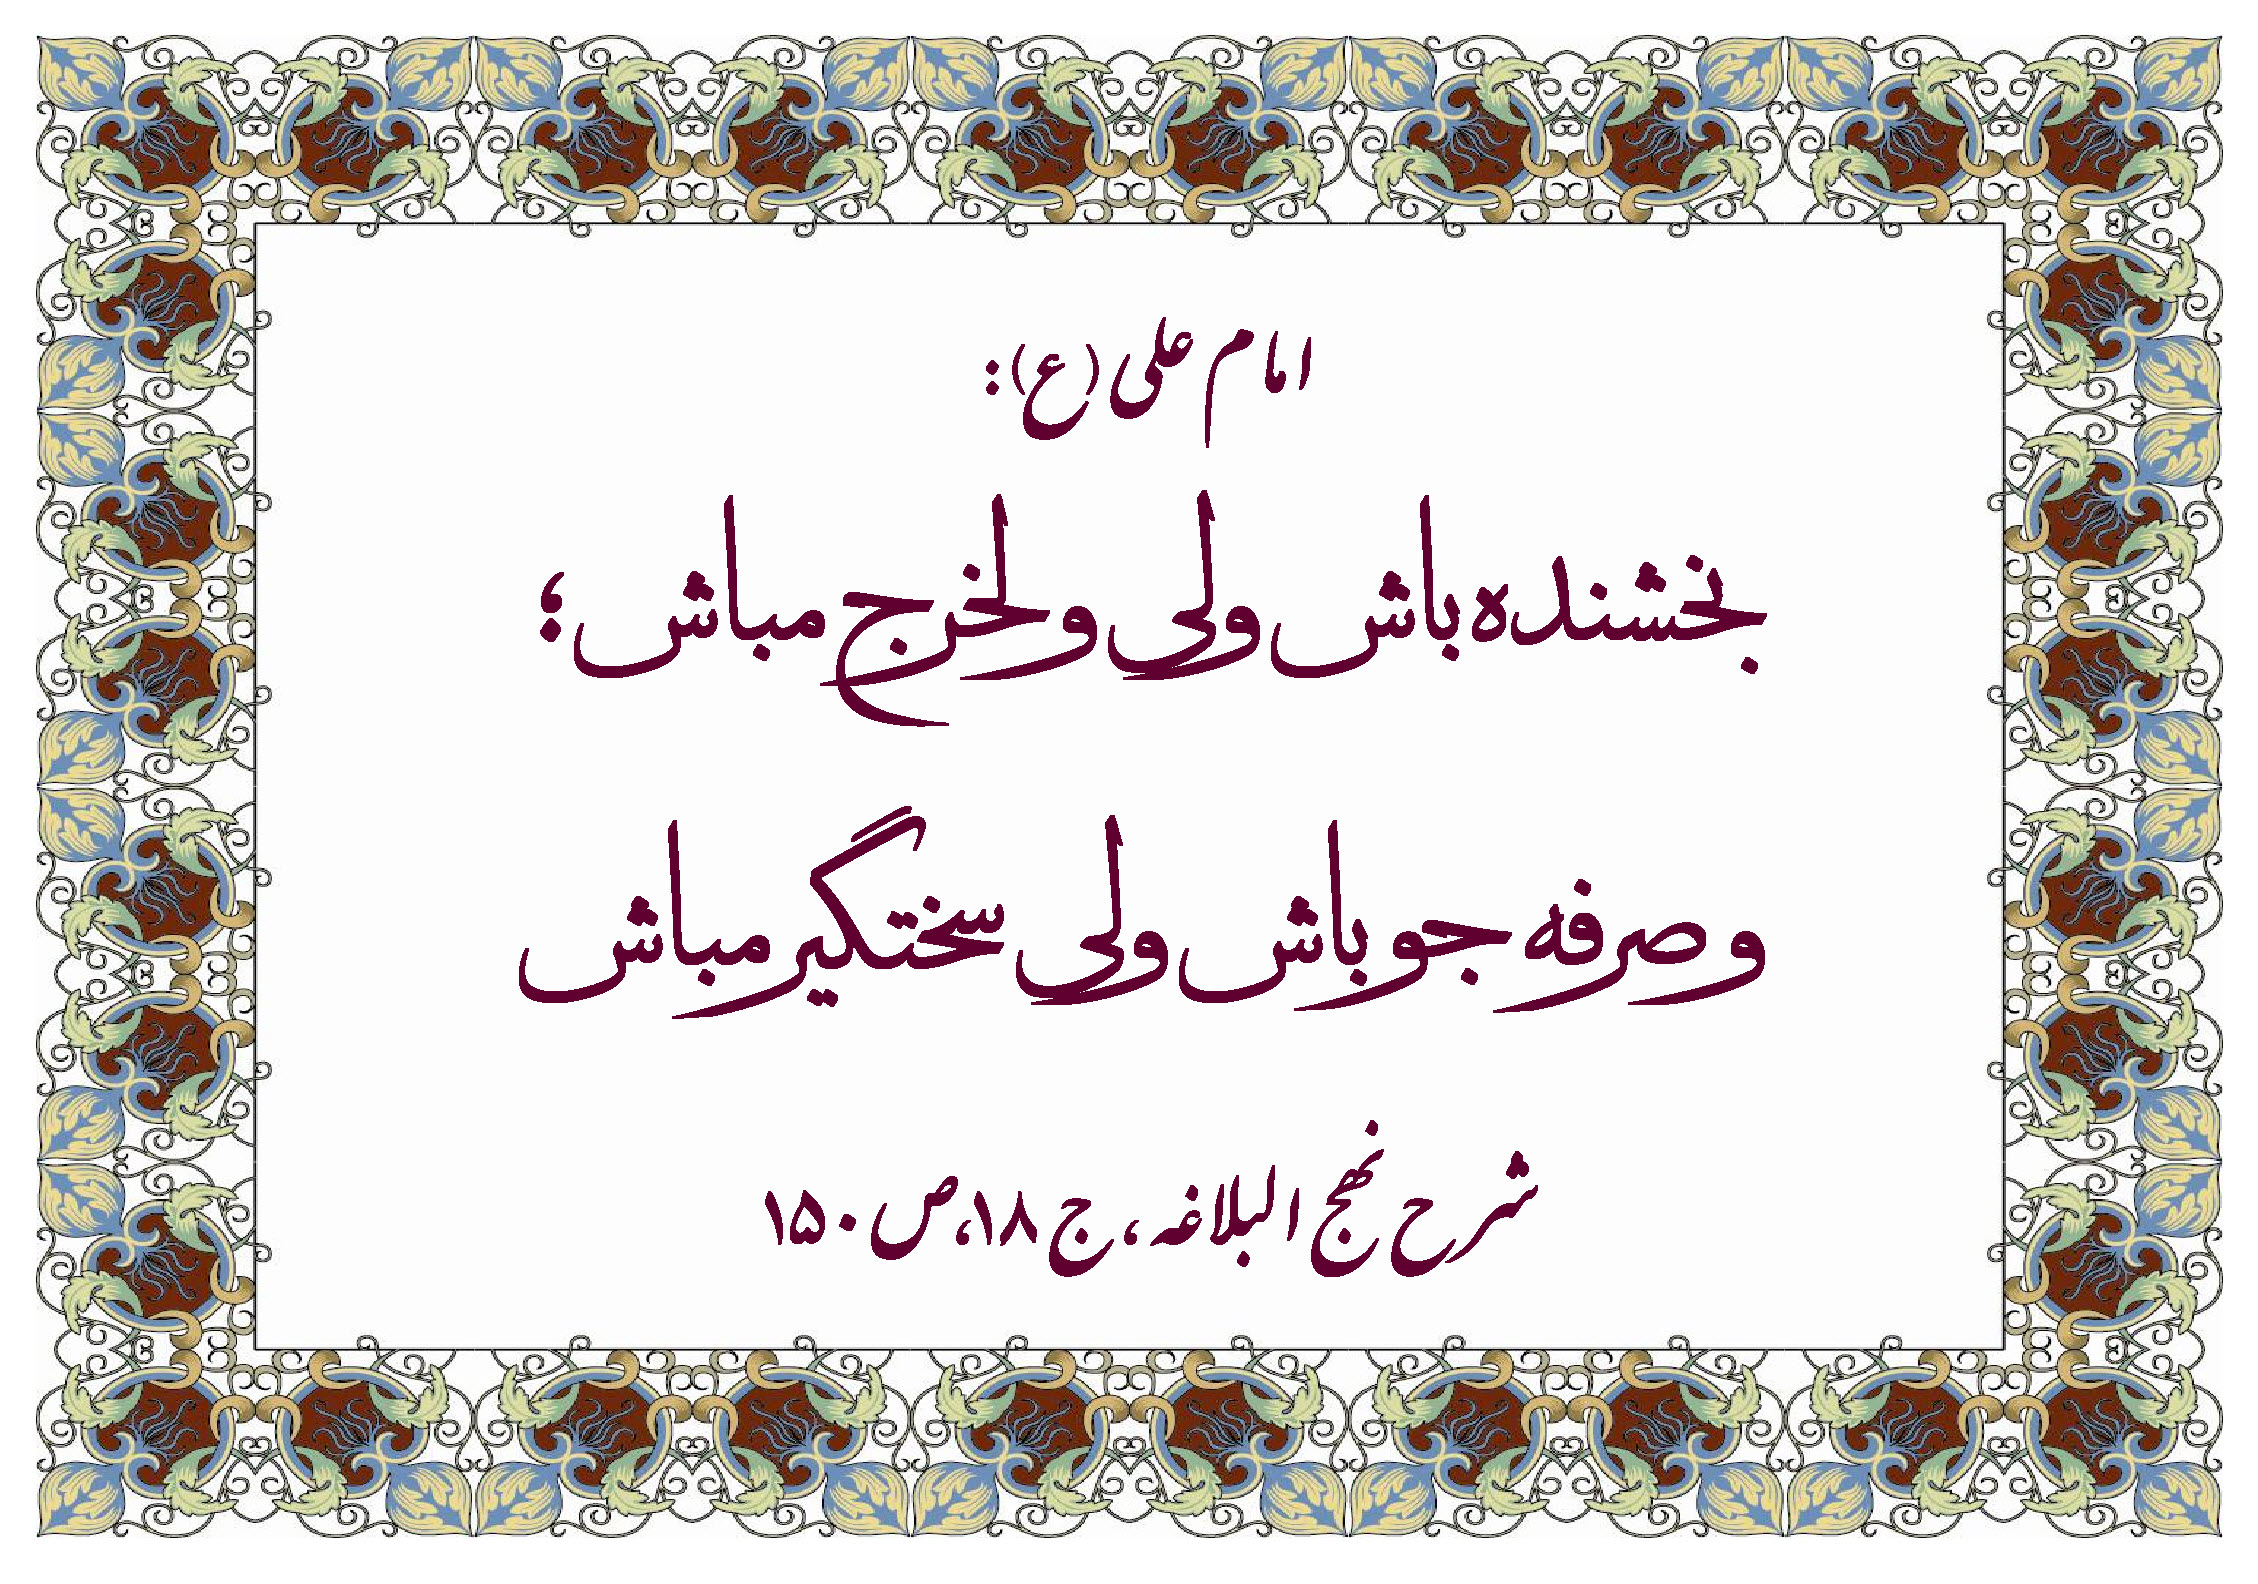 امام علی (ع):
بخشنده باش ولی ولخرج مباش؛
و صرفه جو باش ولی سختگیر مباش
شرح نهج البلاغه، ج ۱۸، ص ۱۵۰